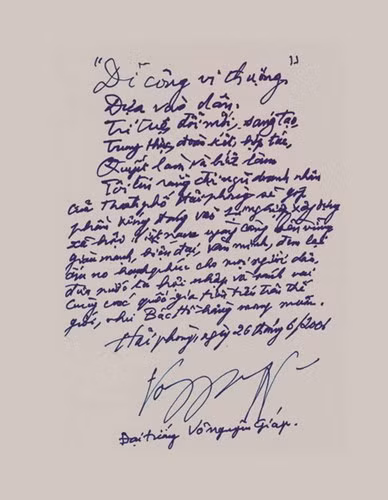 "Dĩ công vi thượng"
Dựa vào dân.
Trí tuệ đổi mới, sáng tạo
Trung thực, đoàn kết, hợp tác,
Quyết làm và biết làm
Tôi tin rằng đội ngũ doanh nhân
của Thành phố Hải phòng sẽ góp
phần xứng đáng vào sự nghiệp xây dựng
xã hội Việt nam ngày càng bền vững
giàu mạnh, hiện đại, văn minh, đem lại
ấm no hạnh phúc cho mọi người dân,
đưa nước ta hội nhập và sánh vai
cùng các quốc gia tiên tiến trên thế
giới, như Bác Hồ hằng mong muốn.
Hải phòng, ngày 26 tháng 6/2006
Đại tướng Võ nguyên Giáp.